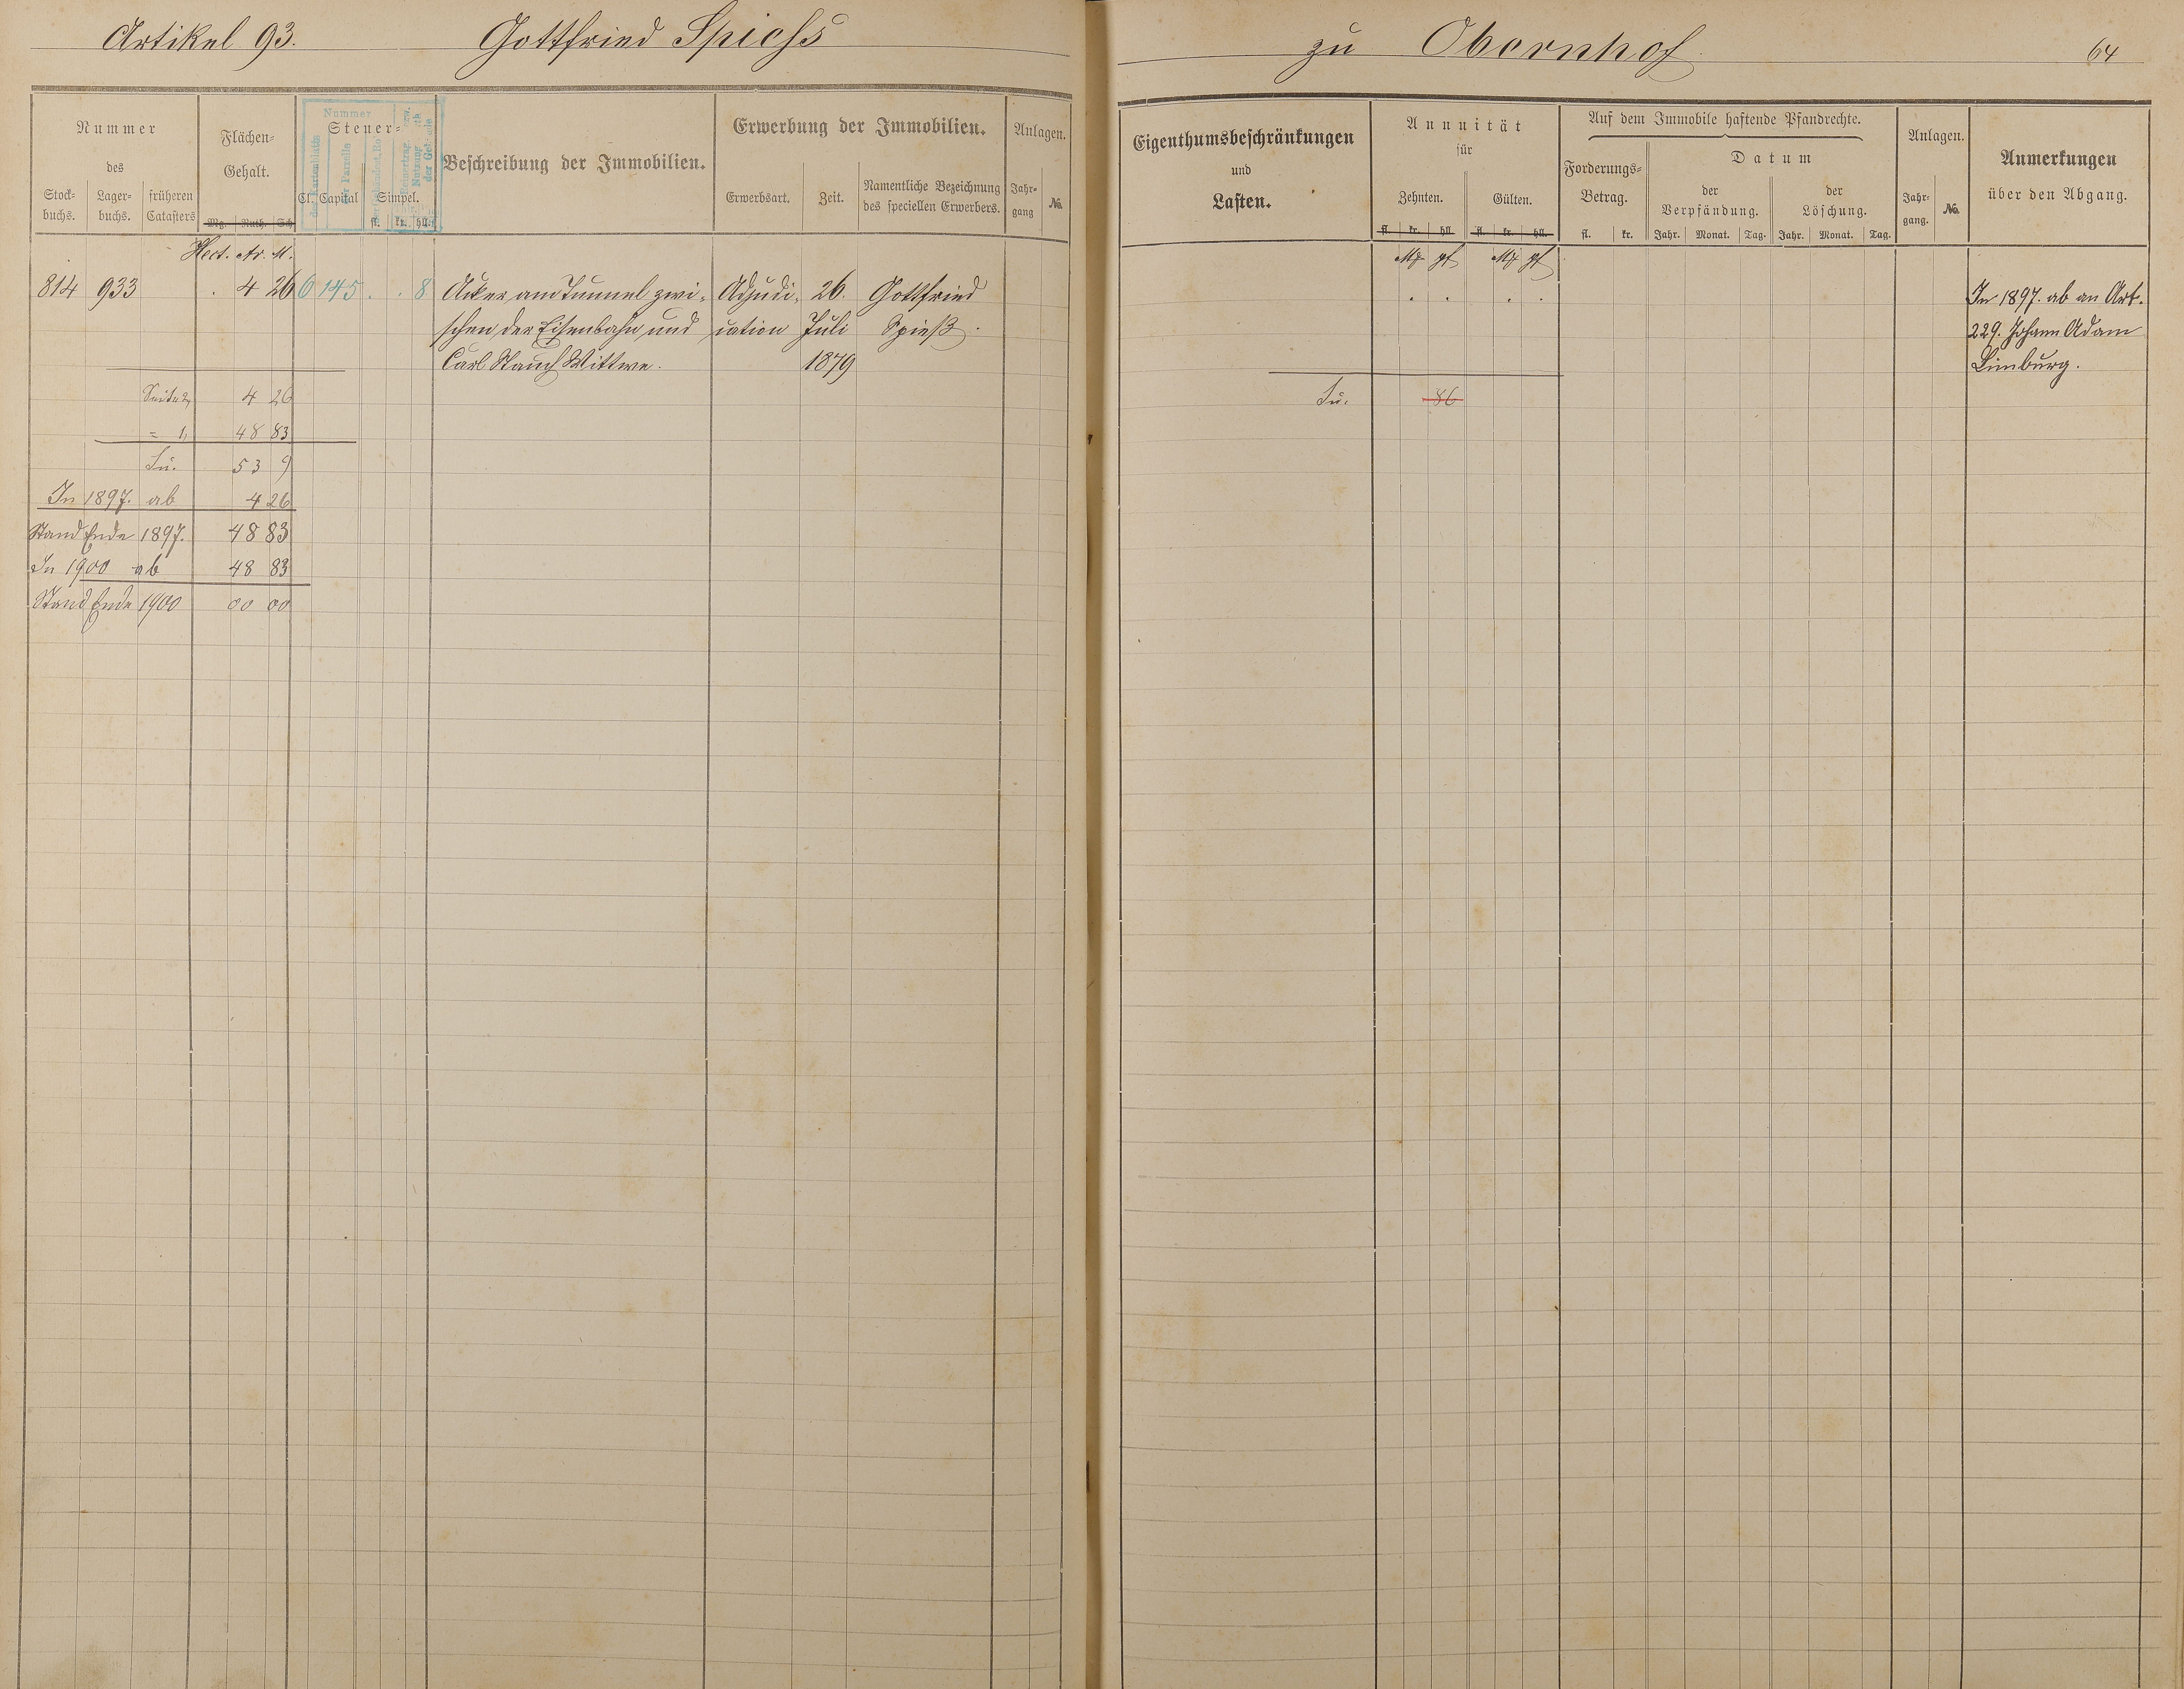 Artikel 93. Gottfried Spiehs zu Obernhof 64
Nummer
des
Stock-
buchs.
Lager-
buchs.
früheren
Catasters
Flächen-
Gehalt.
Mg. Ruth. Sch
Nummer
Steuer-
Cl. Capital Simpel.
fl. kr. hll.
Beschreibung der Immobilien.
Erwerbung der Immobilien.
Erwerbsart. Zeit.
Namentliche Bezeichnung
des speciellen Erwerbers.
Anlagen.
Jahr-
gang
No.
Eigenthumsbeschränkungen
und
Lasten.
Annuität
für
Zehnten. Gülten.
fl. kr. hll. fl. kr. hll.
Auf dem Immobile haftende Pfandrechte.
Forderungs-
Betrag.
fl. kr.
Datum
der
Verpfändung.
der
Löschung.
Jahr. Monat. Tag. Jahr. Monat. Tag.
Anlagen.
Jahr-
gang.
No.
Anmerkungen
über den Abgang.
Hect. Ar. M. Mk pf Mk pf
814 933 . 4 26 6 145 . . 8 Acker am Tunnel zwi- Adjudi- 26. Gottfried . . . . In 1897. ab an Art.
schen der Eisenbahn und cation Juli Spieß. 229. Johann Adam
Carl Stauch Wittwe. 1879 Limburg.
Seite 2, 4 26 Su. 86
= 1, 48 83
Su. 53 9
In 1897. ab 4 26
Stand Ende 1897. 48 83
In 1900 ab 48 83
Stand Ende 1900 00 00